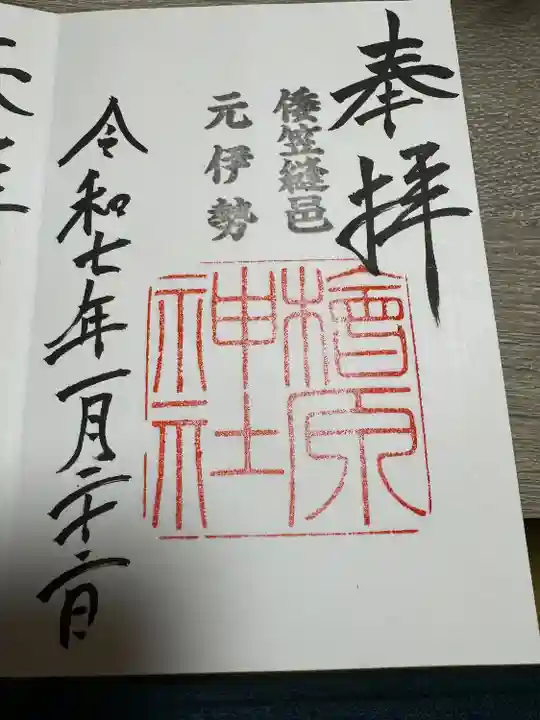 奉拝
倭笠縫邑
元伊勢
檜原
神社
令和七年一月二十六日